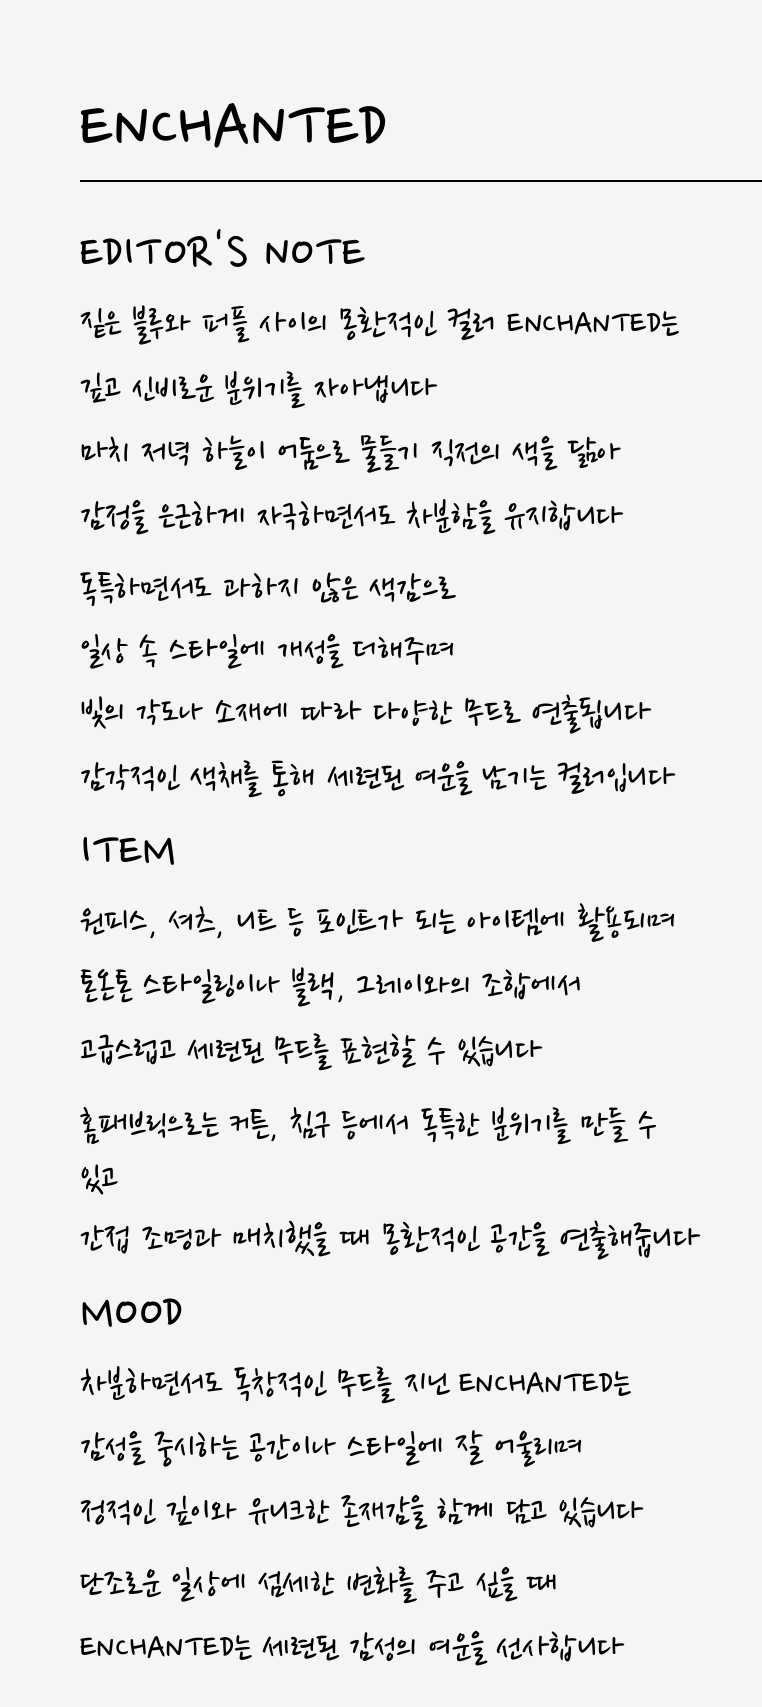 ENCHANTED
EDITOR'S NOTE
짙은 블루와 퍼플 사이의 몽환적인 컬러 ENCHANTED는
깊고 신비로운 분위기를 자아냅니다
마치 저녁 하늘이 어둠으로 물들기 직전의 색을 닮아
감정을 은근하게 자극하면서도 차분함을 유지합니다
독특하면서도 과하지 않은 색감으로
일상 속 스타일에 개성을 더해주며
빛의 각도나 소재에 따라 다양한 무드로 연출됩니다
감각적인 색채를 통해 세련된 여운을 남기는 컬러입니다
ITEM
원피스, 셔츠, 니트 등 포인트가 되는 아이템에 활용되며
톤온톤 스타일링이나 블랙, 그레이와의 조합에서
고급스럽고 세련된 무드를 표현할 수 있습니다
홈패브릭으로는 커튼, 침구 등에서 독특한 분위기를 만들 수
있고
간접 조명과 매치했을 때 몽환적인 공간을 연출해줍니다
MOOD
차분하면서도 독창적인 무드를 지닌 ENCHANTED는
감성을 중시하는 공간이나 스타일에 잘 어울리며
정적인 깊이와 유니크한 존재감을 함께 담고 있습니다
단조로운 일상에 섬세한 변화를 주고 싶을 때
ENCHANTED는 세련된 감성의 여운을 선사합니다